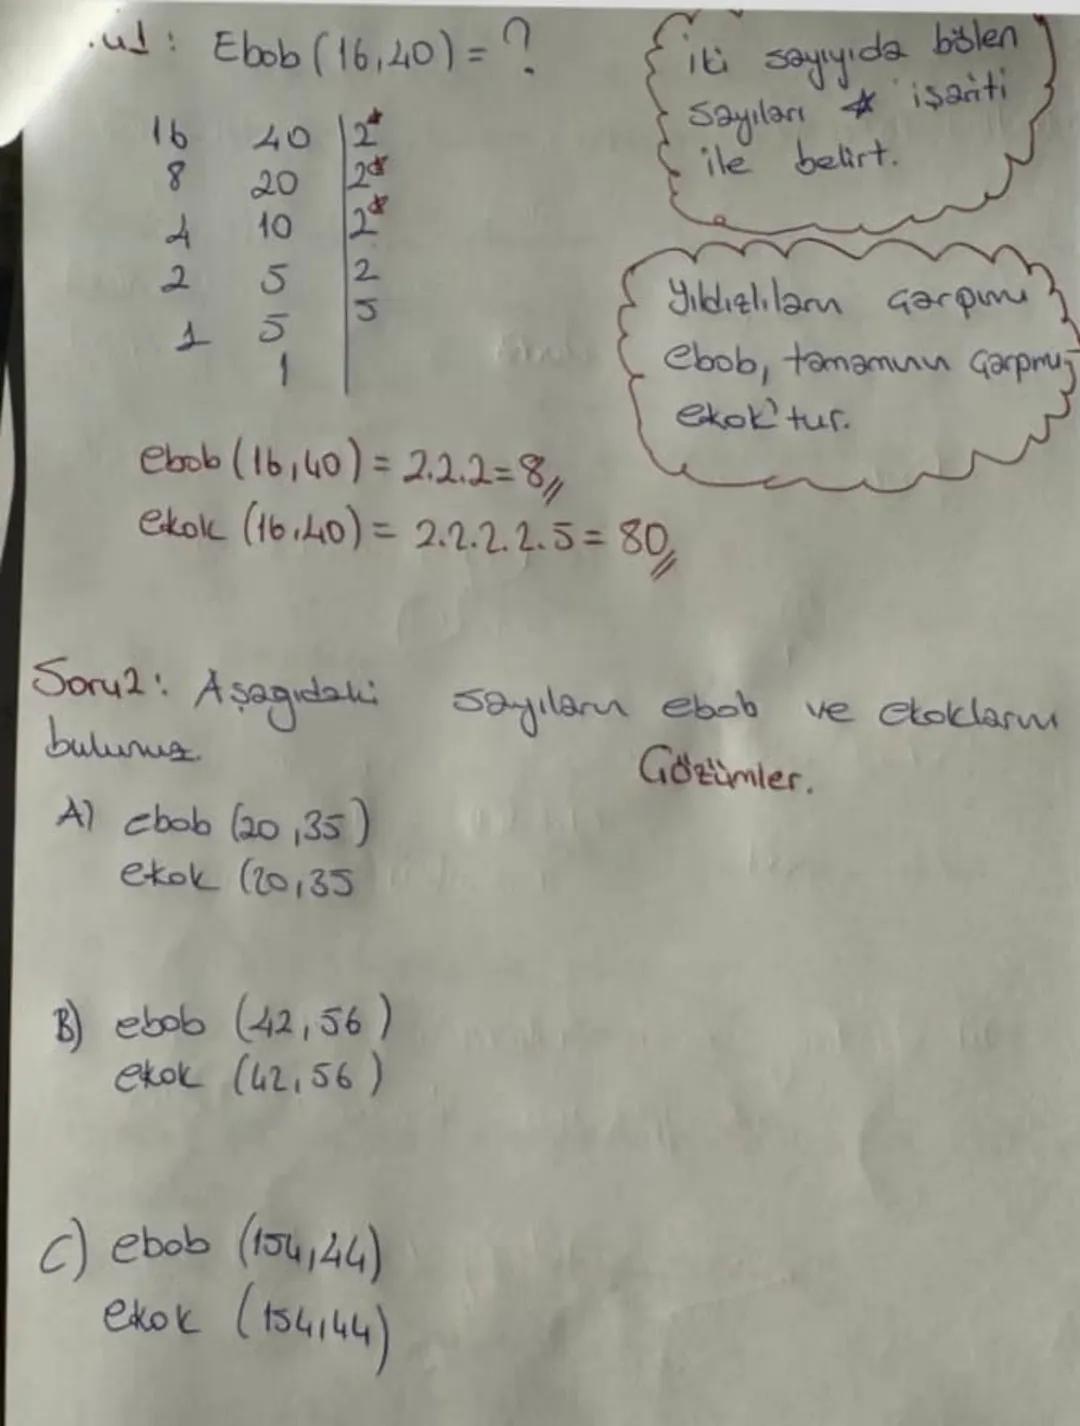 Ebob (16,40) = ?
16 40 2*
8 20 2*
4 10 2*
2 5 2
1 5 5
1
iki sayıyıda bölen
sayıları * işareti
ile belirt.
Yıldızlıların çarpımı
ebob, tamamının çarpımı
ekok'tur.
ebob (16,40) = 2.2.2 = 8
ekok (16,40) = 2.2.2.2.5 = 80
Soru2: Aşagıdaki sayıların ebob ve ekoklarını
bulunuz.
Çözümler.
A) ebob (20,35)
ekok (20,35
B) ebob (42,56)
ekok (42,56)
C) ebob (154,44)
ekok (154,44)